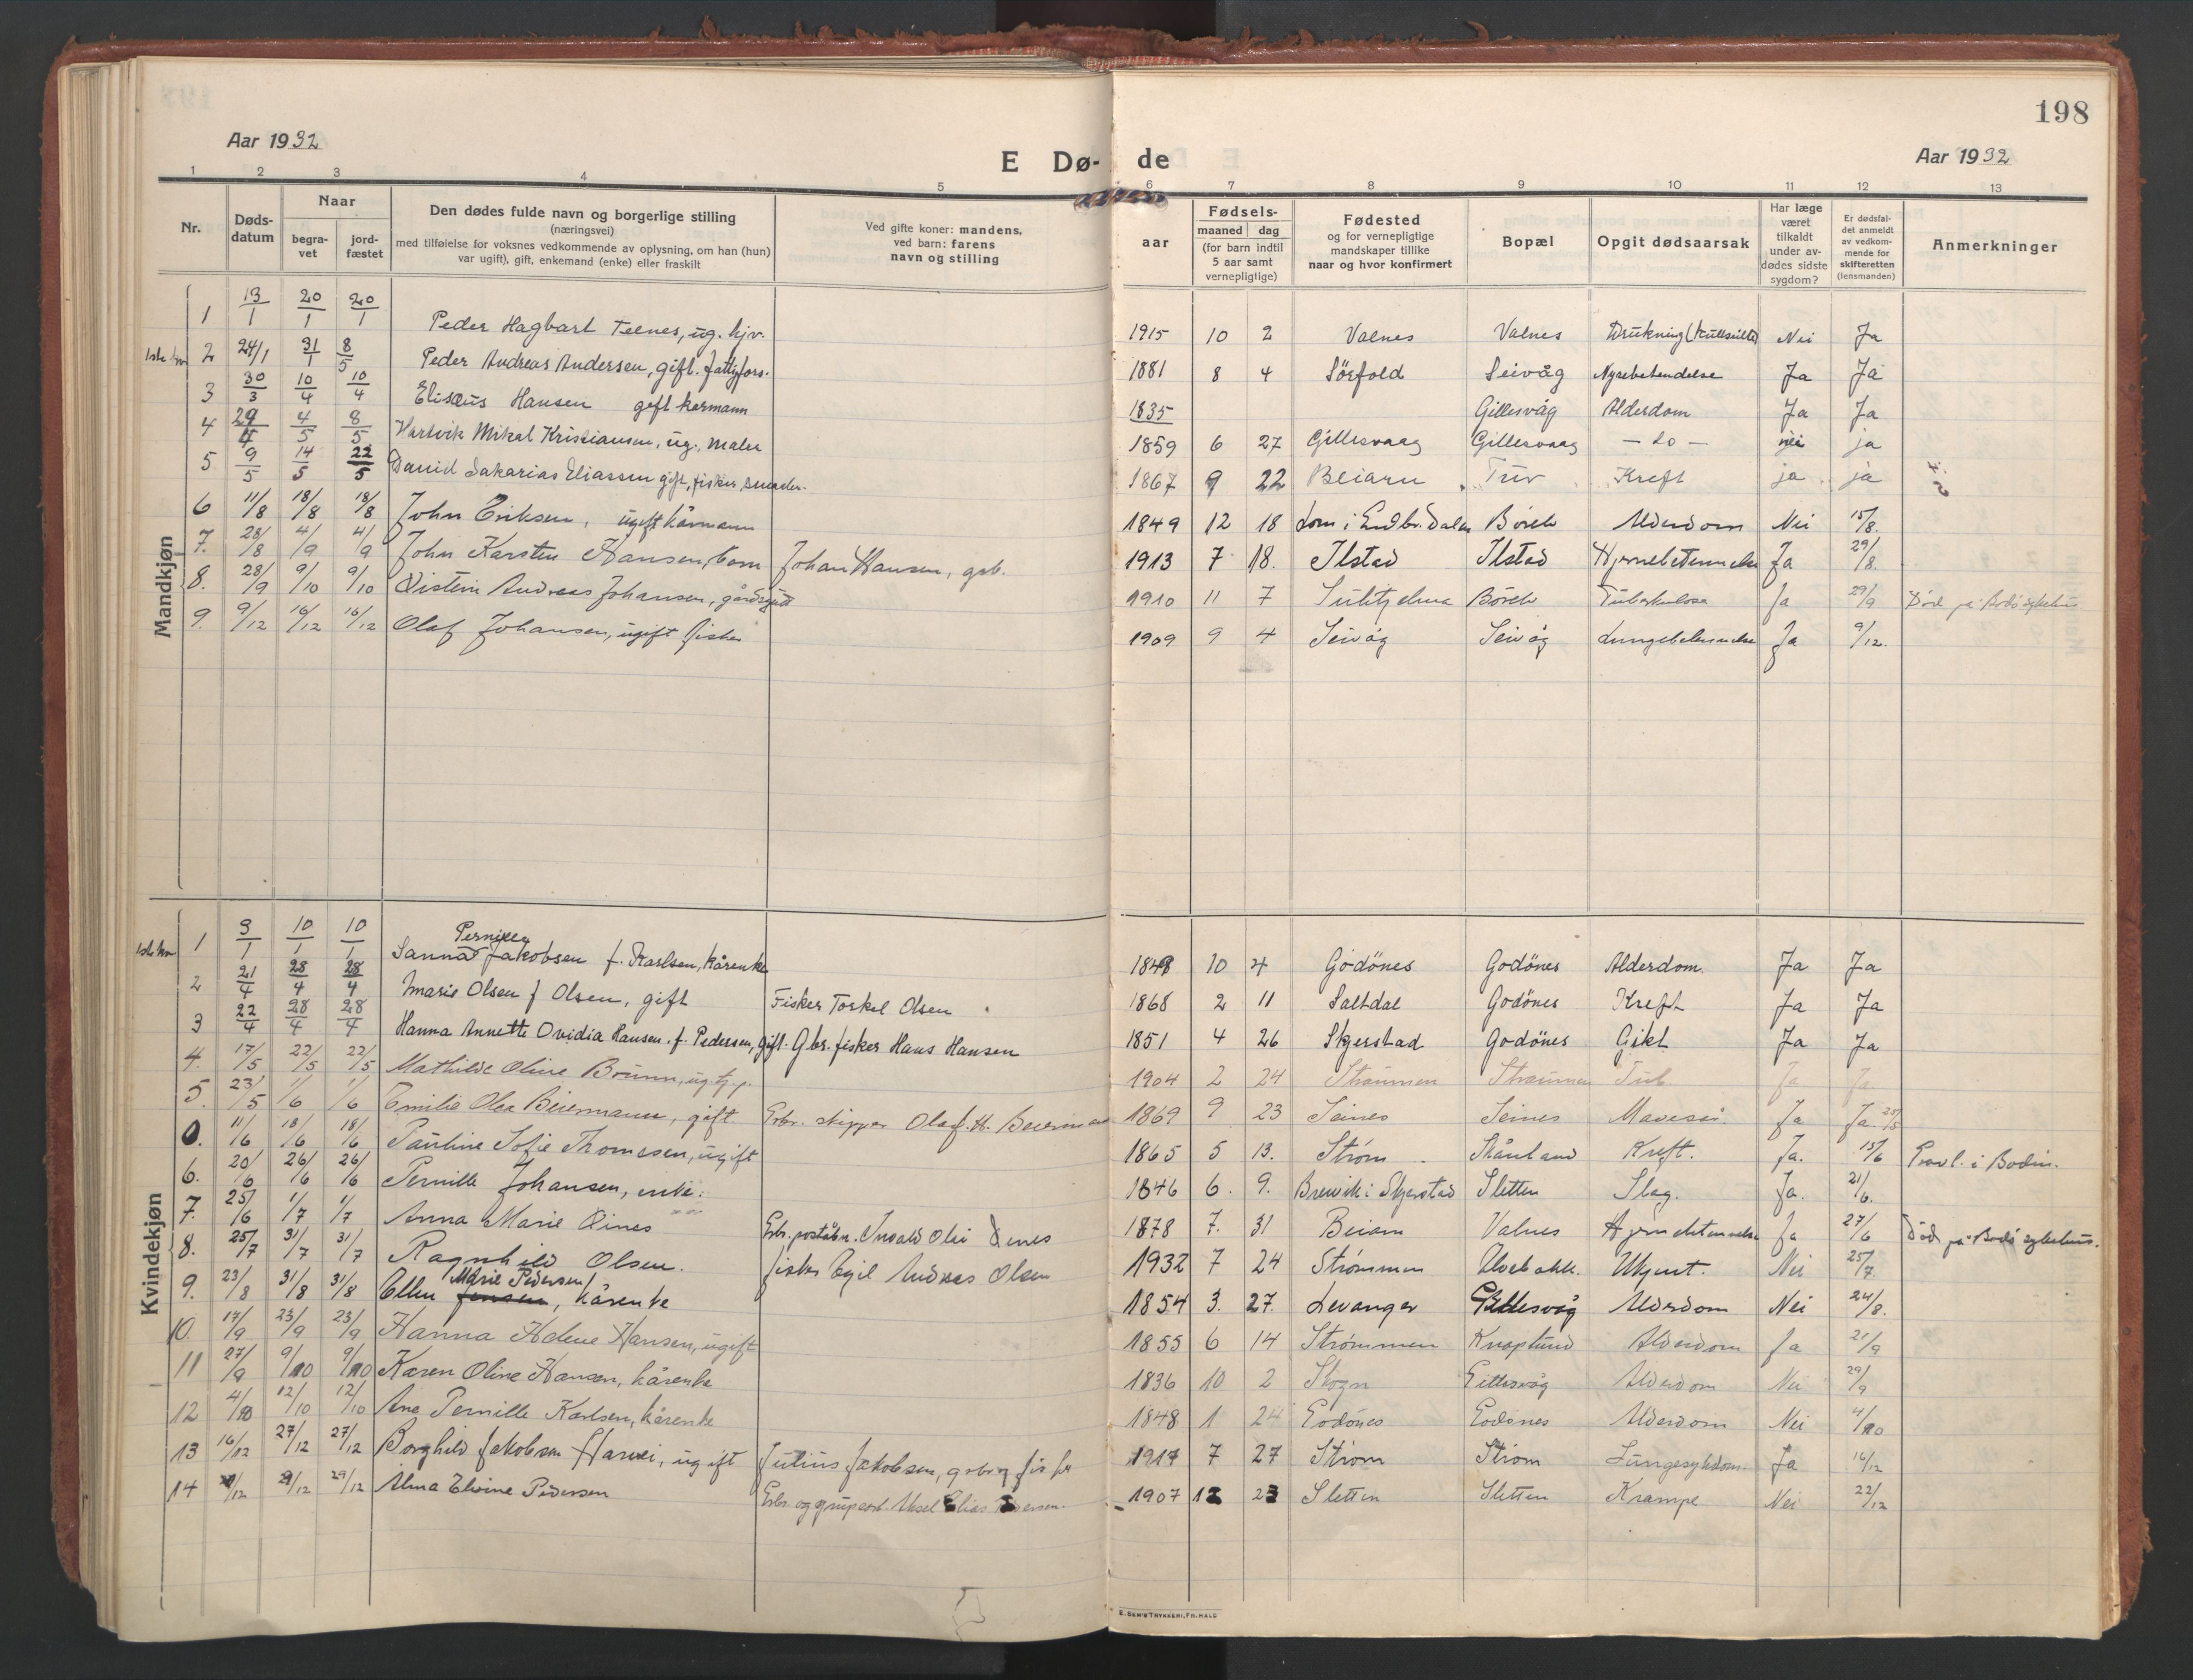 198
Aar 1932
E Dø- de
Aar 1932
1 2 3 4 5 6 7 8 9 10 11 12 13
Nr.
Døds-
datum
Naar
begra-
vet
jord-
fæstet
Den dødes fulde navn og borgerlige stilling
(næringsvei)
med tilføielse for voksnes vedkommende av oplysning, om han (hun)
var ugift), gift, enkemand (enke) eller fraskilt
Ved gifte koner: mandens,
ved barn: farens
navn og stilling
aar
Fødsels-
maaned dag
(for barn indtil
5 aar samt
vernepligtige)
Fødested
og for vernepligtige
mandskaper tillike
naar og hvor konfirmert
Bopæl
Opgit dødsaarsak
Har læge
været
tilkaldt
under av-
dødes sidste
sygdom?
Er dødsfal-
det anmeldt
av vedkom-
mende for
skifteretten
(lensmanden)
Anmerkninger
Mandkjøn
1 13/1 20/1 20/1 Peder Hagbart Teenes, ug. hjv. 1915 10 2 Valnes Valnes Drukning Nei Ja
2 24/1 31/1 8/5 Peder Andreas Andersen, gift. fattigfors. 1881 8 4 Sörfold Seivåg Nyrebetendelse Ja Ja
3 30/3 10/4 10/4 Elisæus Hansen gift karmann 1835 Gillesvåg Alderdom Ja Ja
4 29/4 4/5 8/5 Hartvik Mikal Kristiansen, ug. maler 1859 6 27 Gillesvaag Gillesvaag — do — nei ja
5 9/5 14/5 22/5 David Sakarias Eliassen gift, fisker, 1867 9 22 Beiarn Tuv Kreft ja ja
6 11/8 18/8 18/8 John Eriksen, ugift kårmann 1849 12 18 Lom i Gudbr. dalen Börelv Alderdom Nei 15/8.
7. 28/8 4/9 4/9 John Karsten Hansen, barn Johan Hansen, grb. 1913 7 18. Ilstad Ilstad Hjernebetennelse Ja 29/8.
8. 28/9 9/10 9/10 Øistein Andreas Johansen, gårdsgutt 1910 11 7 Sulitjelma Börelv Tuberkulose Ja 29/9 Död på Bodö sykehus
9. 9/12 16/12 16/12 Olaf Johansen, ugift fisker 1909 9 4 Seivåg Seivåg Lungebetennelse Ja 9/12.
Kvindekjøn
1 3/1 10/1 10/1 Sanna Pernille Jakobsen f. Karlsen, kårenke 1848 10 4 Godönes Godönes Alderdom. Ja Ja
2 21/4 28/4 28/4 Marie Olsen f Olsen, gift Fisker Torkel Olsen 1868 2 11 Saltdal Godönes Kreft Ja Ja
3 22/4 28/4 28/4 Hanna Annette Ovidia Hansen. f. Pedersen, gift. Gbr. fisker Hans Hansen 1851 4 26 Skjerstad Godönes Gikt Ja Ja
4. 17/5 22/5 22/5 Mathilde Oline Brunn, ug. tj.p. 1904 2 24 Straumen Straumen Tub. Ja Ja
5. 23/5 1/6 1/6 Emilie Olea Beiermann, gift. Gbr. skipper Olaf H. Beiermann 1869 9 23 Seines Seines Mavesår Ja Ja 25/5
0. 11/6 18/6 18/6 Pauline Sofie Thomesen, ugift 1865 5 13. Ström Skånland Kreft. Ja. 15/6 Gravl. i Bodin.
6. 20/6 26/6 26/6 Pernille Johansen, enke. 1846 6. 9. Breivik i Skjerstad Sletten Slag. Ja. 21/6.
7. 25/6 1/7 1/7 Anna Marie Dines Gbr. poståbn. Invald Olai Denes 1878 7. 31 Beiarn Valnes Hjernebetennelse Ja 27/6 Död på Bodö sykehus.
8. 25/7 31/7 31/7 Ragnhild Olsen. fisker Egil Andreas Olsen 1932 7 24 Strømmen Alvebakk. Ukjent. Nei 25/7
9. 23/8 31/8 31/8 Ellen Jensen Marie Pedersen, kårenke 1854 3. 27. Levanger Gillesvåg Alderdom Nei 24/8.
10. 17/9 23/9 23/9 Hanna Helene Hansen, ugift 1855 6 14 Strømmen Knaplund Alderdom Ja 21/9
11 27/9 9/10 9/10 Karen Oline Hansen, kårenke 1836 10 2 Skogn Gillesvåg Alderdom Nei 29/9
12 4/10 12/10 12/10 Ane Pernille Karlsen, kårenke 1848 1 24 Godönes Godönes Alderdom Nei 4/10
13 16/12 27/12 27/12 Borghild Jakobsen Harvei, ugift Julius Jakobsen, grbr og fisker 1917 7 27 Ström Ström Lungesykdom Ja 16/12
14 /12 29/12 29/12 Alma Elvine Pedersen Gbr. og grupearb. Aksel Elias Pedersen. 1907 12 23 Sletten Sletten Krampe Nei 22/12
E. SEM'S TRYKKERI, FR.HALD